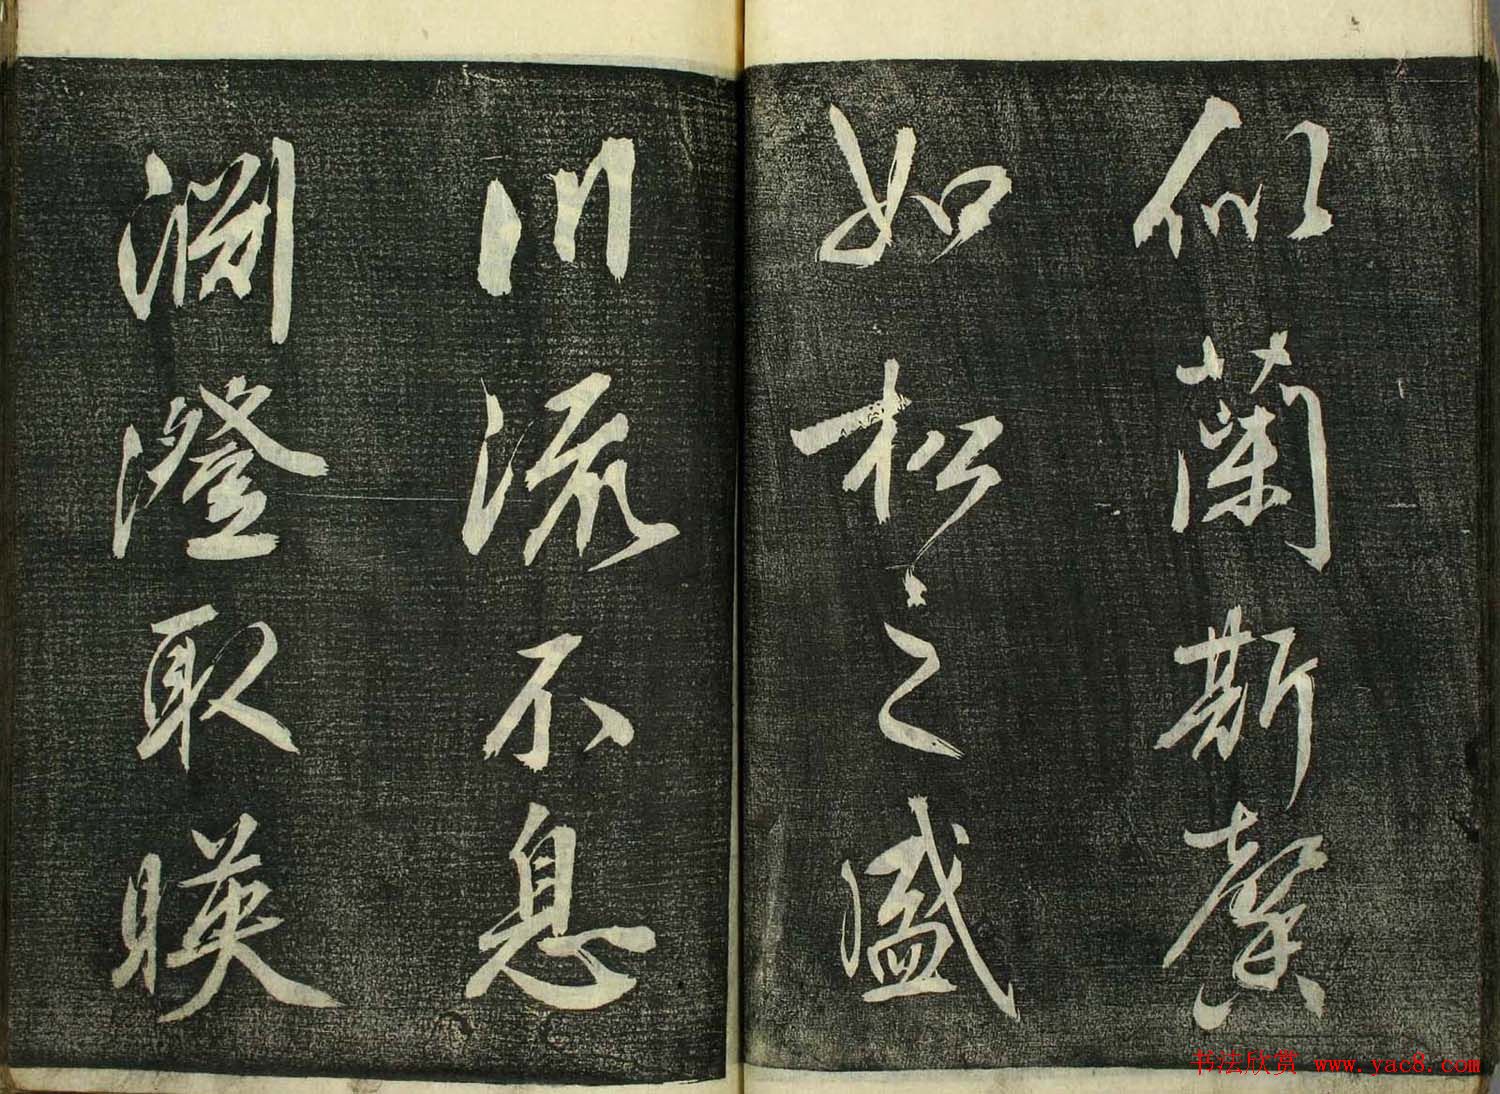 似蘭斯馨
如松之盛
川流不息
淵澄取暎
书法欣赏 www.yac8.com